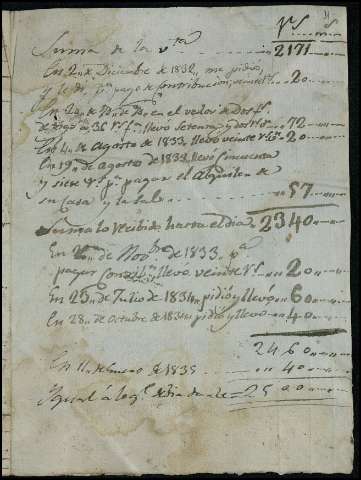 Rs. ms.
Suma de la vta 2171
En 2 de Diciembre de 1832 me pidió
y le di pa pago de contribución veinte rs 20
de 36 rs llevo setenta y dos rs 72
En 4 de Agosto de 1833 llevó veinte rs 20
En 19 de Agosto de 1833 llevó cincuenta
y siete rs pa pagar el Alquiler de
su Casa y la sala 57
Suma lo recibido hasta el día 2340
En de Novbre de 1833 pa
pagar llevó veinte rs 20
En 25 de Julio de 1834 pidió y llevó 60
En 28 de Octubre de 1834 pidió y llevó 40
2460
En 11 de Enero de 1835 40
Igual á 2500